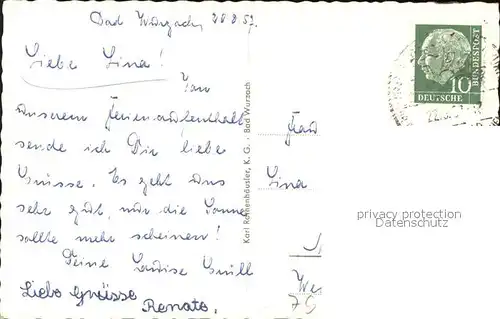 Bad Wurzach, 20.8.57.
Liebe Lina!
Von
unserem Ferienaufenthalt
sende ich Dir liebe
Grüsse. Es geht uns
sehr gut, nur die Sonne
sollte mehr scheinen!
Deine
Liebe Grüsse
Renate.
Karl Rothenhäusler, K. G. · Bad Wurzach
Frau
Lina
10
DEUTSCHE
BUNDESPOST
privacy protection
Datenschutz